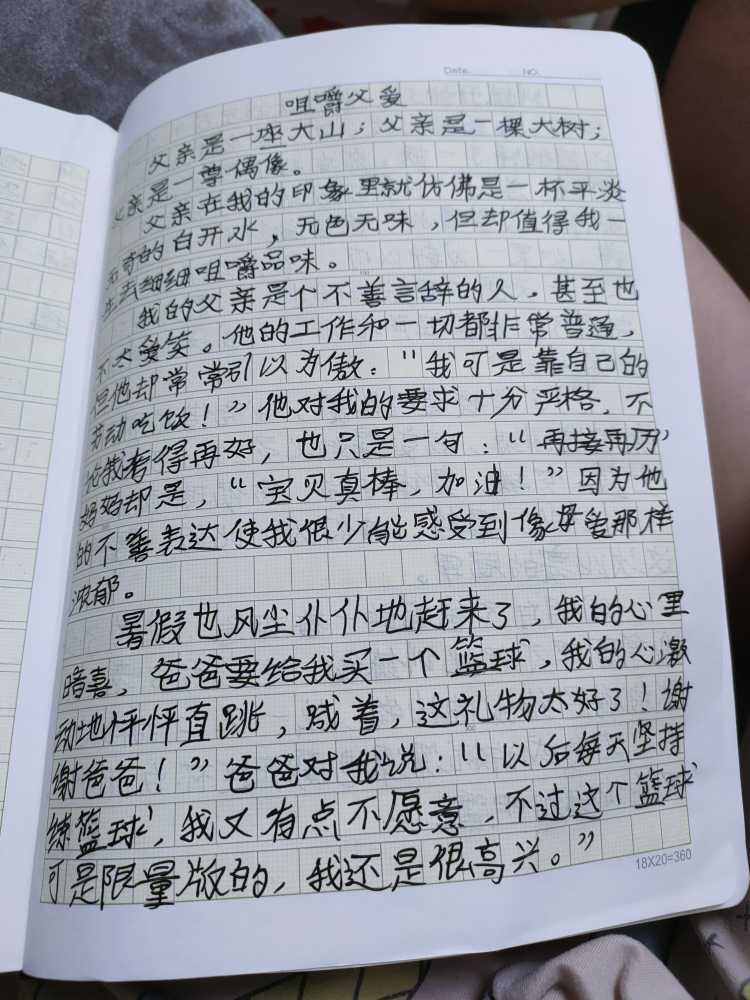 Date. NO.
咀嚼父爱
父亲是一座大山；父亲是一棵大树；
父亲是一尊偶像。
父亲在我的印象里就仿佛是一杯平淡
无奇的白开水，无色无味，但却值得我一
生去细细咀嚼品味。
我的父亲是个不善言辞的人，甚至也
不大爱笑。他的工作和一切都非常普通，
但他却常常引以为傲：“我可是靠自己的
劳动吃饭！”他对我的要求十分严格，不
论我考得再好，也只是一句：“再接再厉”
妈妈却是，“宝贝真棒，加油！”因为他
的不善表达使我很少能感受到像母爱那样
浓郁。
暑假也风尘仆仆地赶来了，我的心里
暗喜，爸爸要给我买一个篮球，我的心激
动地怦怦直跳，喊着，这礼物太好了！谢
谢爸爸！”爸爸对我说：“以后每天坚持
练篮球，我又有点不愿意，不过这个篮球
可是限量版的，我还是很高兴。”
18X20=360